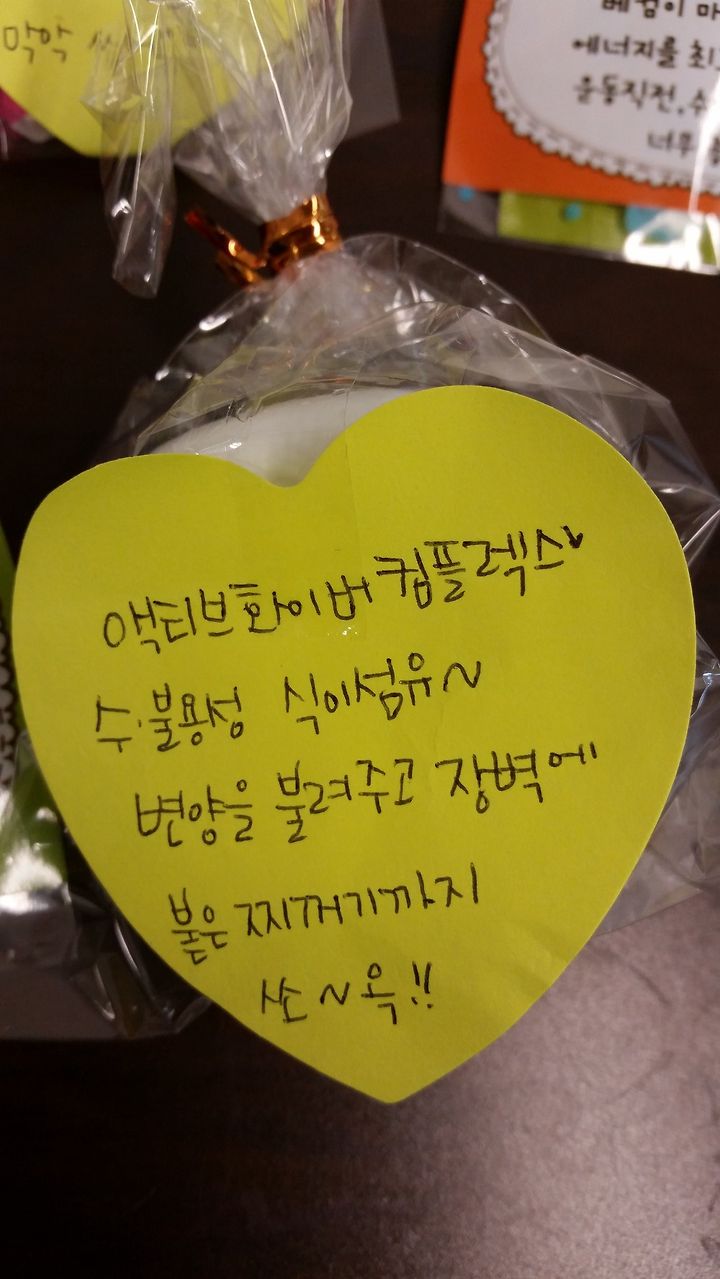 막약
베컴이 마
에너지를 최
운동직전, 수
너무
액티브화이버 컴플렉스
수·불용성 식이섬유~
변양을 불려주고 장벽에
붙은 찌꺼기까지
쏘~옥!!